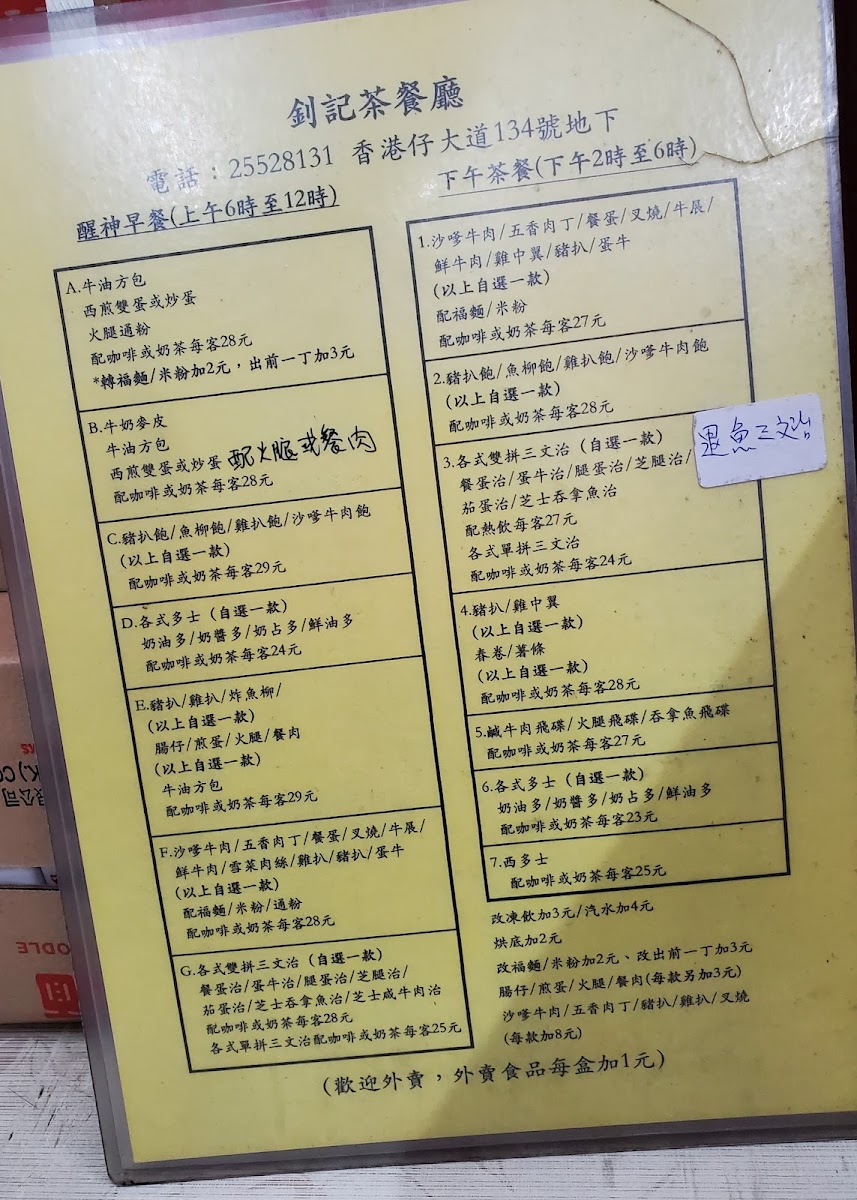 釗記茶餐廳
電話：25528131 香港仔大道134號地下
醒神早餐(上午6時至12時)
A.牛油方包
西煎雙蛋或炒蛋
火腿通粉
配咖啡或奶茶每客28元
*轉福麵/米粉加2元，出前一丁加3元
B.牛奶麥皮
牛油方包
西煎雙蛋或炒蛋 配火腿或餐肉
配咖啡或奶茶每客28元
C.豬扒飽/魚柳飽/雞扒飽/沙爹牛肉飽
(以上自選一款)
配咖啡或奶茶每客29元
D.各式多士（自選一款）
奶油多/奶醬多/奶占多/鮮油多
配咖啡或奶茶每客24元
E.豬扒/雞扒/炸魚柳/
(以上自選一款)
腸仔/煎蛋/火腿/餐肉
(以上自選一款)
牛油方包
配咖啡或奶茶每客29元
F.沙爹牛肉/五香肉丁/餐蛋/叉燒/牛展/
鮮牛肉/雪菜肉絲/雞扒/豬扒/蛋牛
(以上自選一款)
配福麵/米粉/通粉
配咖啡或奶茶每客28元
G.各式雙拼三文治（自選一款）
餐蛋治/蛋牛治/腿蛋治/芝腿治/
茄蛋治/芝士吞拿魚治/芝士咸牛肉治
配咖啡或奶茶每客28元
各式單拼三文治配咖啡或奶茶每客25元
下午茶餐(下午2時至6時)
1.沙爹牛肉/五香肉丁/餐蛋/叉燒/牛展/
鮮牛肉/雞中翼/豬扒/蛋牛
(以上自選一款)
配福麵/米粉
配咖啡或奶茶每客27元
2.豬扒飽/魚柳飽/雞扒飽/沙爹牛肉飽
(以上自選一款)
配咖啡或奶茶每客28元
3.各式雙拼三文治（自選一款）
餐蛋治/蛋牛治/腿蛋治/芝腿治/
茄蛋治/芝士吞拿魚治
配熱飲每客27元
各式單拼三文治
配咖啡或奶茶每客24元
魚三文治
4.豬扒/雞中翼
(以上自選一款)
春卷/薯條
(以上自選一款)
配咖啡或奶茶每客28元
5.鹹牛肉飛碟/火腿飛碟/吞拿魚飛碟
配咖啡或奶茶每客27元
6.各式多士（自選一款）
奶油多/奶醬多/奶占多/鮮油多
配咖啡或奶茶每客23元
7.西多士
配咖啡或奶茶每客25元
改凍飲加3元/汽水加4元
烘底加2元
改福麵/米粉加2元、改出前一丁加3元
腸仔/煎蛋/火腿/餐肉(每款另加3元)
沙爹牛肉/五香肉丁/豬扒/雞扒/叉燒
(每款加8元)
(歡迎外賣，外賣食品每盒加1元)